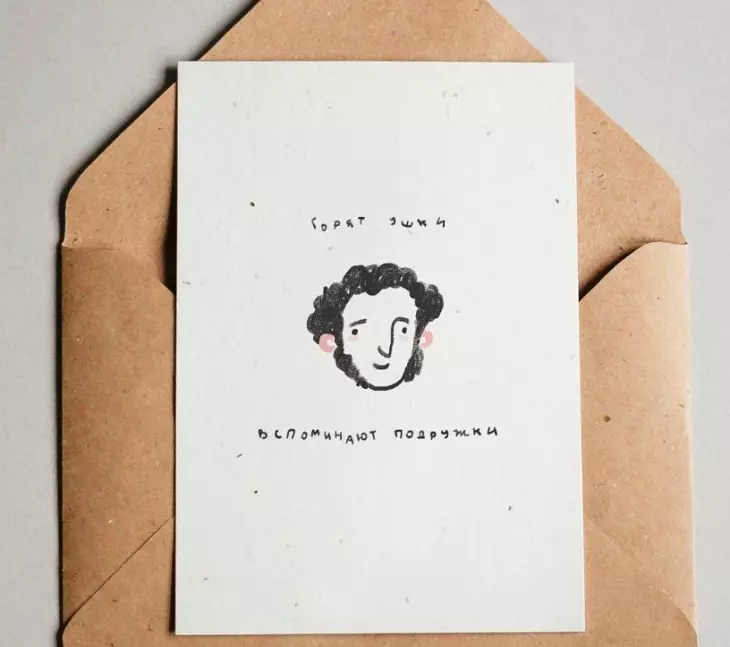 горят ушки
вспоминают подружки